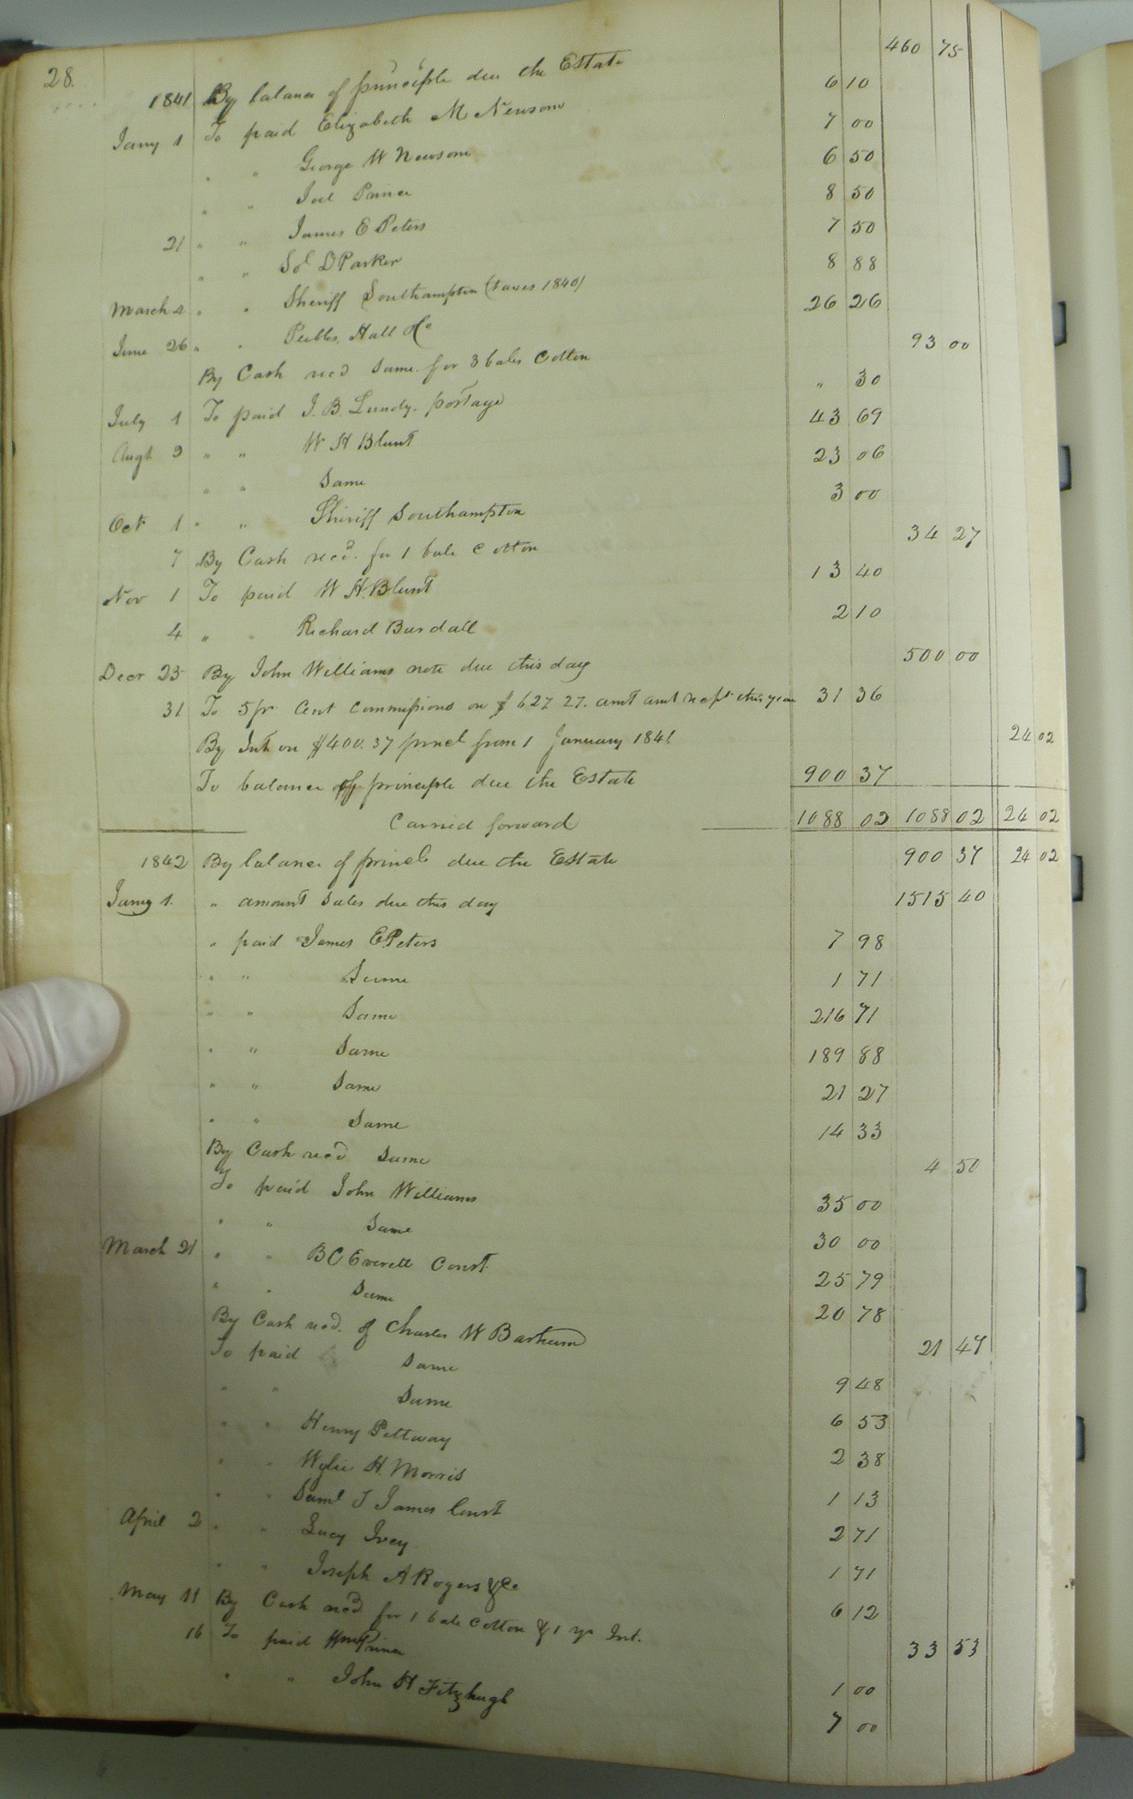 28.
1841 By balance of principle due the Estate 460 75
Jany 1 To paid Elizabeth M Newsom 6 10
" " George W Newsom 7 00
" " Joel Prince 6 50
21 " " James E Peters 8 50
" " Sol D Parker 7 50
March 2 " " Sheriff Southampton (taxes 1840) 8 88
June 26 " " Peebles, Hall & Co 26 26
By Cash recd same for 3 bales Cotton 93 00
July 1 To paid J. B. Lundy. postage " 30
Augt 9 " " W H Blunt 43 69
" " Same 23 06
Oct 1 " " Sheriff Southampton 3 00
7 By Cash recd. for 1 bale cotton 34 27
Nov 1 To paid W H. Blunt 13 40
4 " " Richard Burdall 2 10
Decr 25 By John Williams note due this day 500 00
31 To 5 pr Cent Commissions on $ 627 27. amt recpt this year 31 36
By Int on $400.37 princl from 1 January 1841 24 02
To balance of principle due the Estate 900 37
Carried forward 1088 02 1088 02 24 02
1842 By balance of princl due the Estate 900 37 24 02
Jany 1. " amount Sales due this day 1515 40
" paid James E. Peters 7 98
" " Same 1 71
" " Same 216 71
" " Same 189 88
" " Same 21 27
" " Same 14 33
By Cash recd same 4 50
To paid John Williams 35 00
" " Same 30 00
March 21 " " B C Everett Const. 25 79
" " Same 20 78
By Cash recd. of Charles W Barham 21 47
To paid Same 9 48
" " Same 6 53
" " Henry Pettway 2 38
" " Wylie H. Morris 1 13
" " Saml J James Const 2 71
April 2 " " Lucy Ivey 1 71
" " Joseph A Rogers & Co 6 12
May 11 By Cash recd for 1 bale Cotton & 1 yr Int. 33 53
16 To paid Prince 1 00
" " John H Fitzhugh 7 00